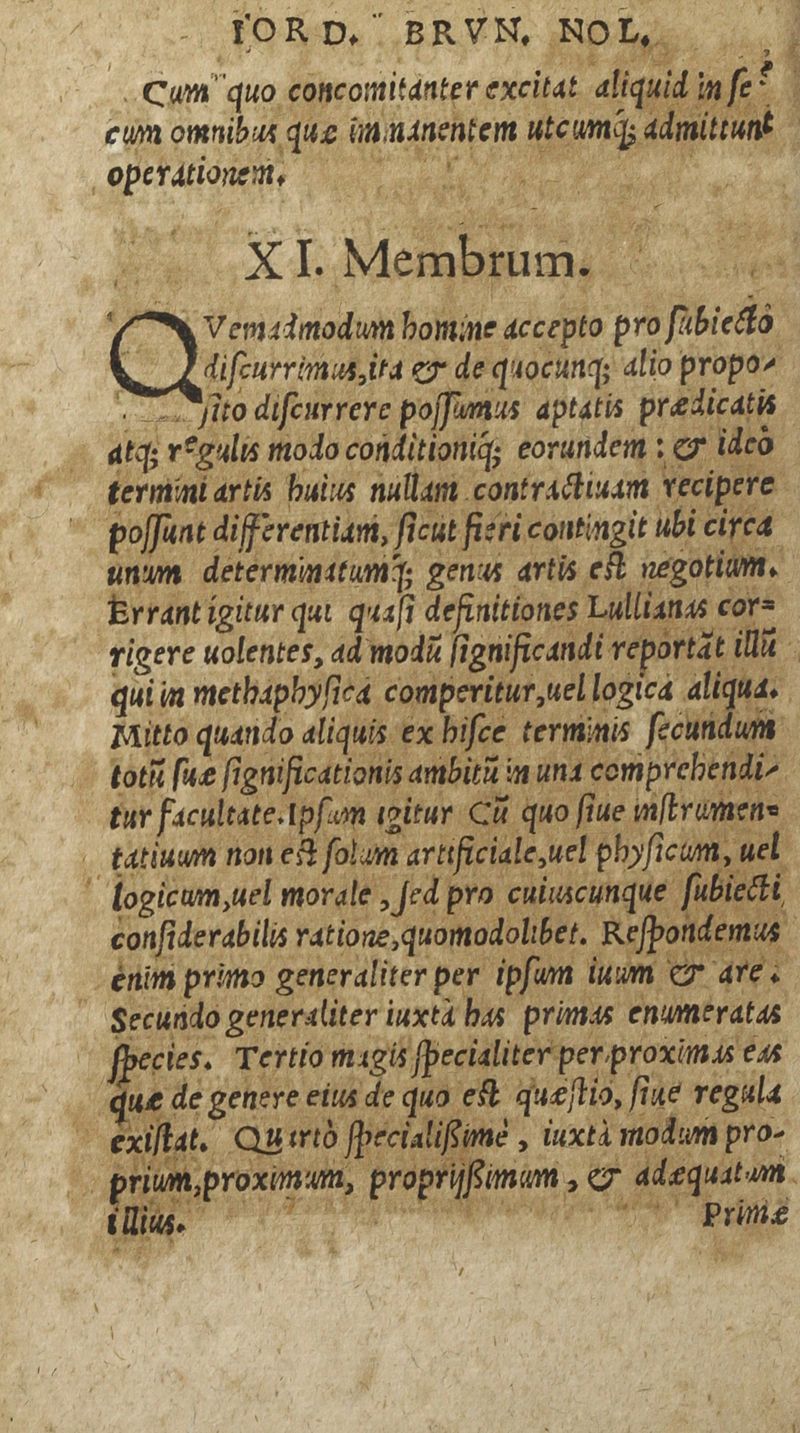 IORD. BRVN. NOL.
Cum quo concomitanter excitat aliquid in se?
cum omnibus quæ immanentem utcumq; admittunt
operationem.
XI. Membrum.
QVemadmodum homine accepto pro subiecto
discurrimus, ita & de quocunq; alio propo-
sito discurrere possumus aptatis prædicatis
atq; regulis modo conditioniq; eorundem : & ideò
termini artis huius nullam contractiuam recipere
possunt differentiam, sicut fieri contingit ubi circa
unum determinatumq; genus artis est negotium.
Errant igitur qui quasi definitiones Lullianas cor=
rigere uolentes, ad modũ significandi reportãt illũ
qui in methaphysica comperitur, uel logica aliqua.
Mitto quando aliquis ex hisce terminis secundum
totũ suæ significationis ambitũ in una comprehendi-
tur facultate. Ipsum igitur Cũ quo siue instrumen=
tatiuum non est solum artificiale, uel physicum, uel
logicum, uel morale, sed pro cuiuscunque subiecti
considerabilis ratione, quomodolibet. Respondemus
enim primo generaliter per ipsum iuum & are.
Secundo generaliter iuxtà has primas enumeratas
species. Tertio magis specialiter per proximas eas
quæ de genere eius de quo est quæstio, siue regula
existat. Quartò specialissimè, iuxtà modum pro-
prium, proximum, proprijssimum, & adæquatum
illius. Primæ